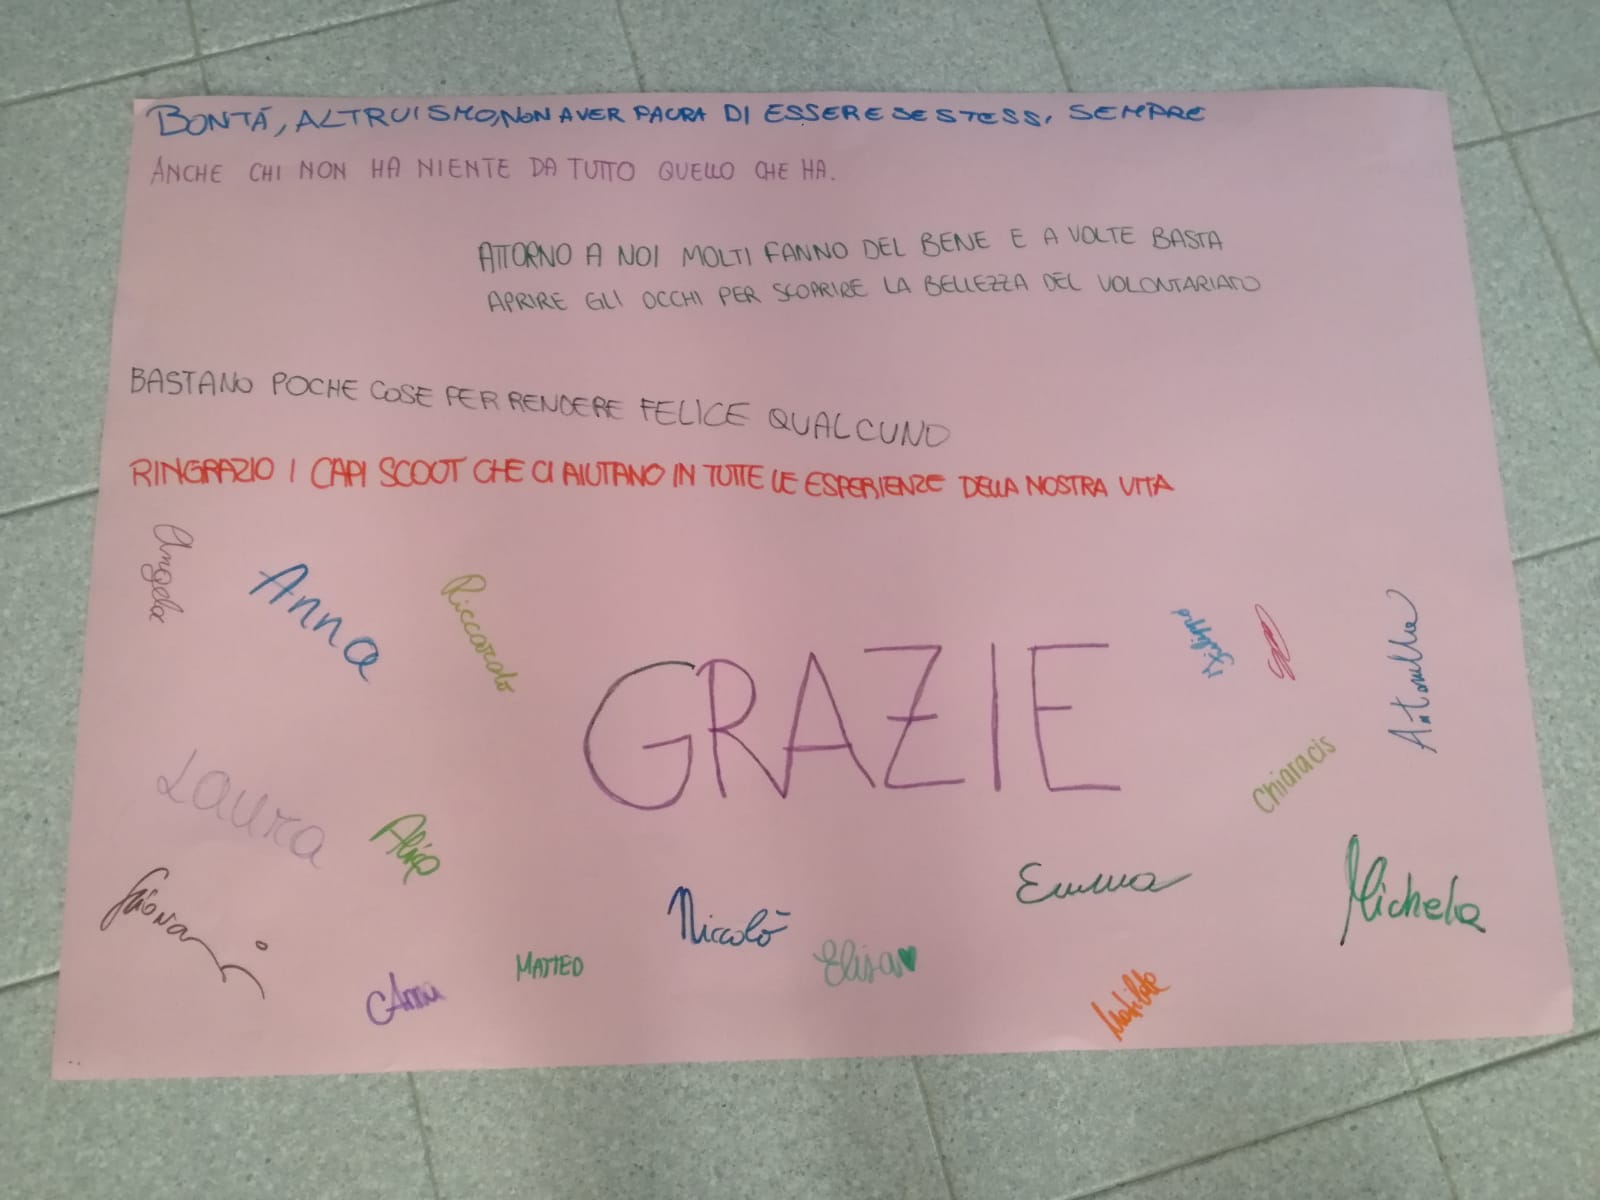 BONTÁ, ALTRUISMO, NON AVER PAURA DI ESSERE SE STESSI, SEMPRE
ANCHE CHI NON HA NIENTE DA TUTTO QUELLO CHE HA.
ATTORNO A NOI MOLTI FANNO DEL BENE E A VOLTE BASTA
APRIRE GLI OCCHI PER SCOPRIRE LA BELLEZZA DEL VOLONTARIATO
BASTANO POCHE COSE PER RENDERE FELICE QUALCUNO
RINGRAZIO I CAPI SCOOT CHE CI AIUTANO IN TUTTE LE ESPERIENZE DELLA NOSTRA VITA
Angela
Anna
Riccardo
Antonella
GRAZIE
Chiaracis
Laura
Alice
Emma
Michela
Niccolò
Elisa♥
MATTEO
Anna
Matilde